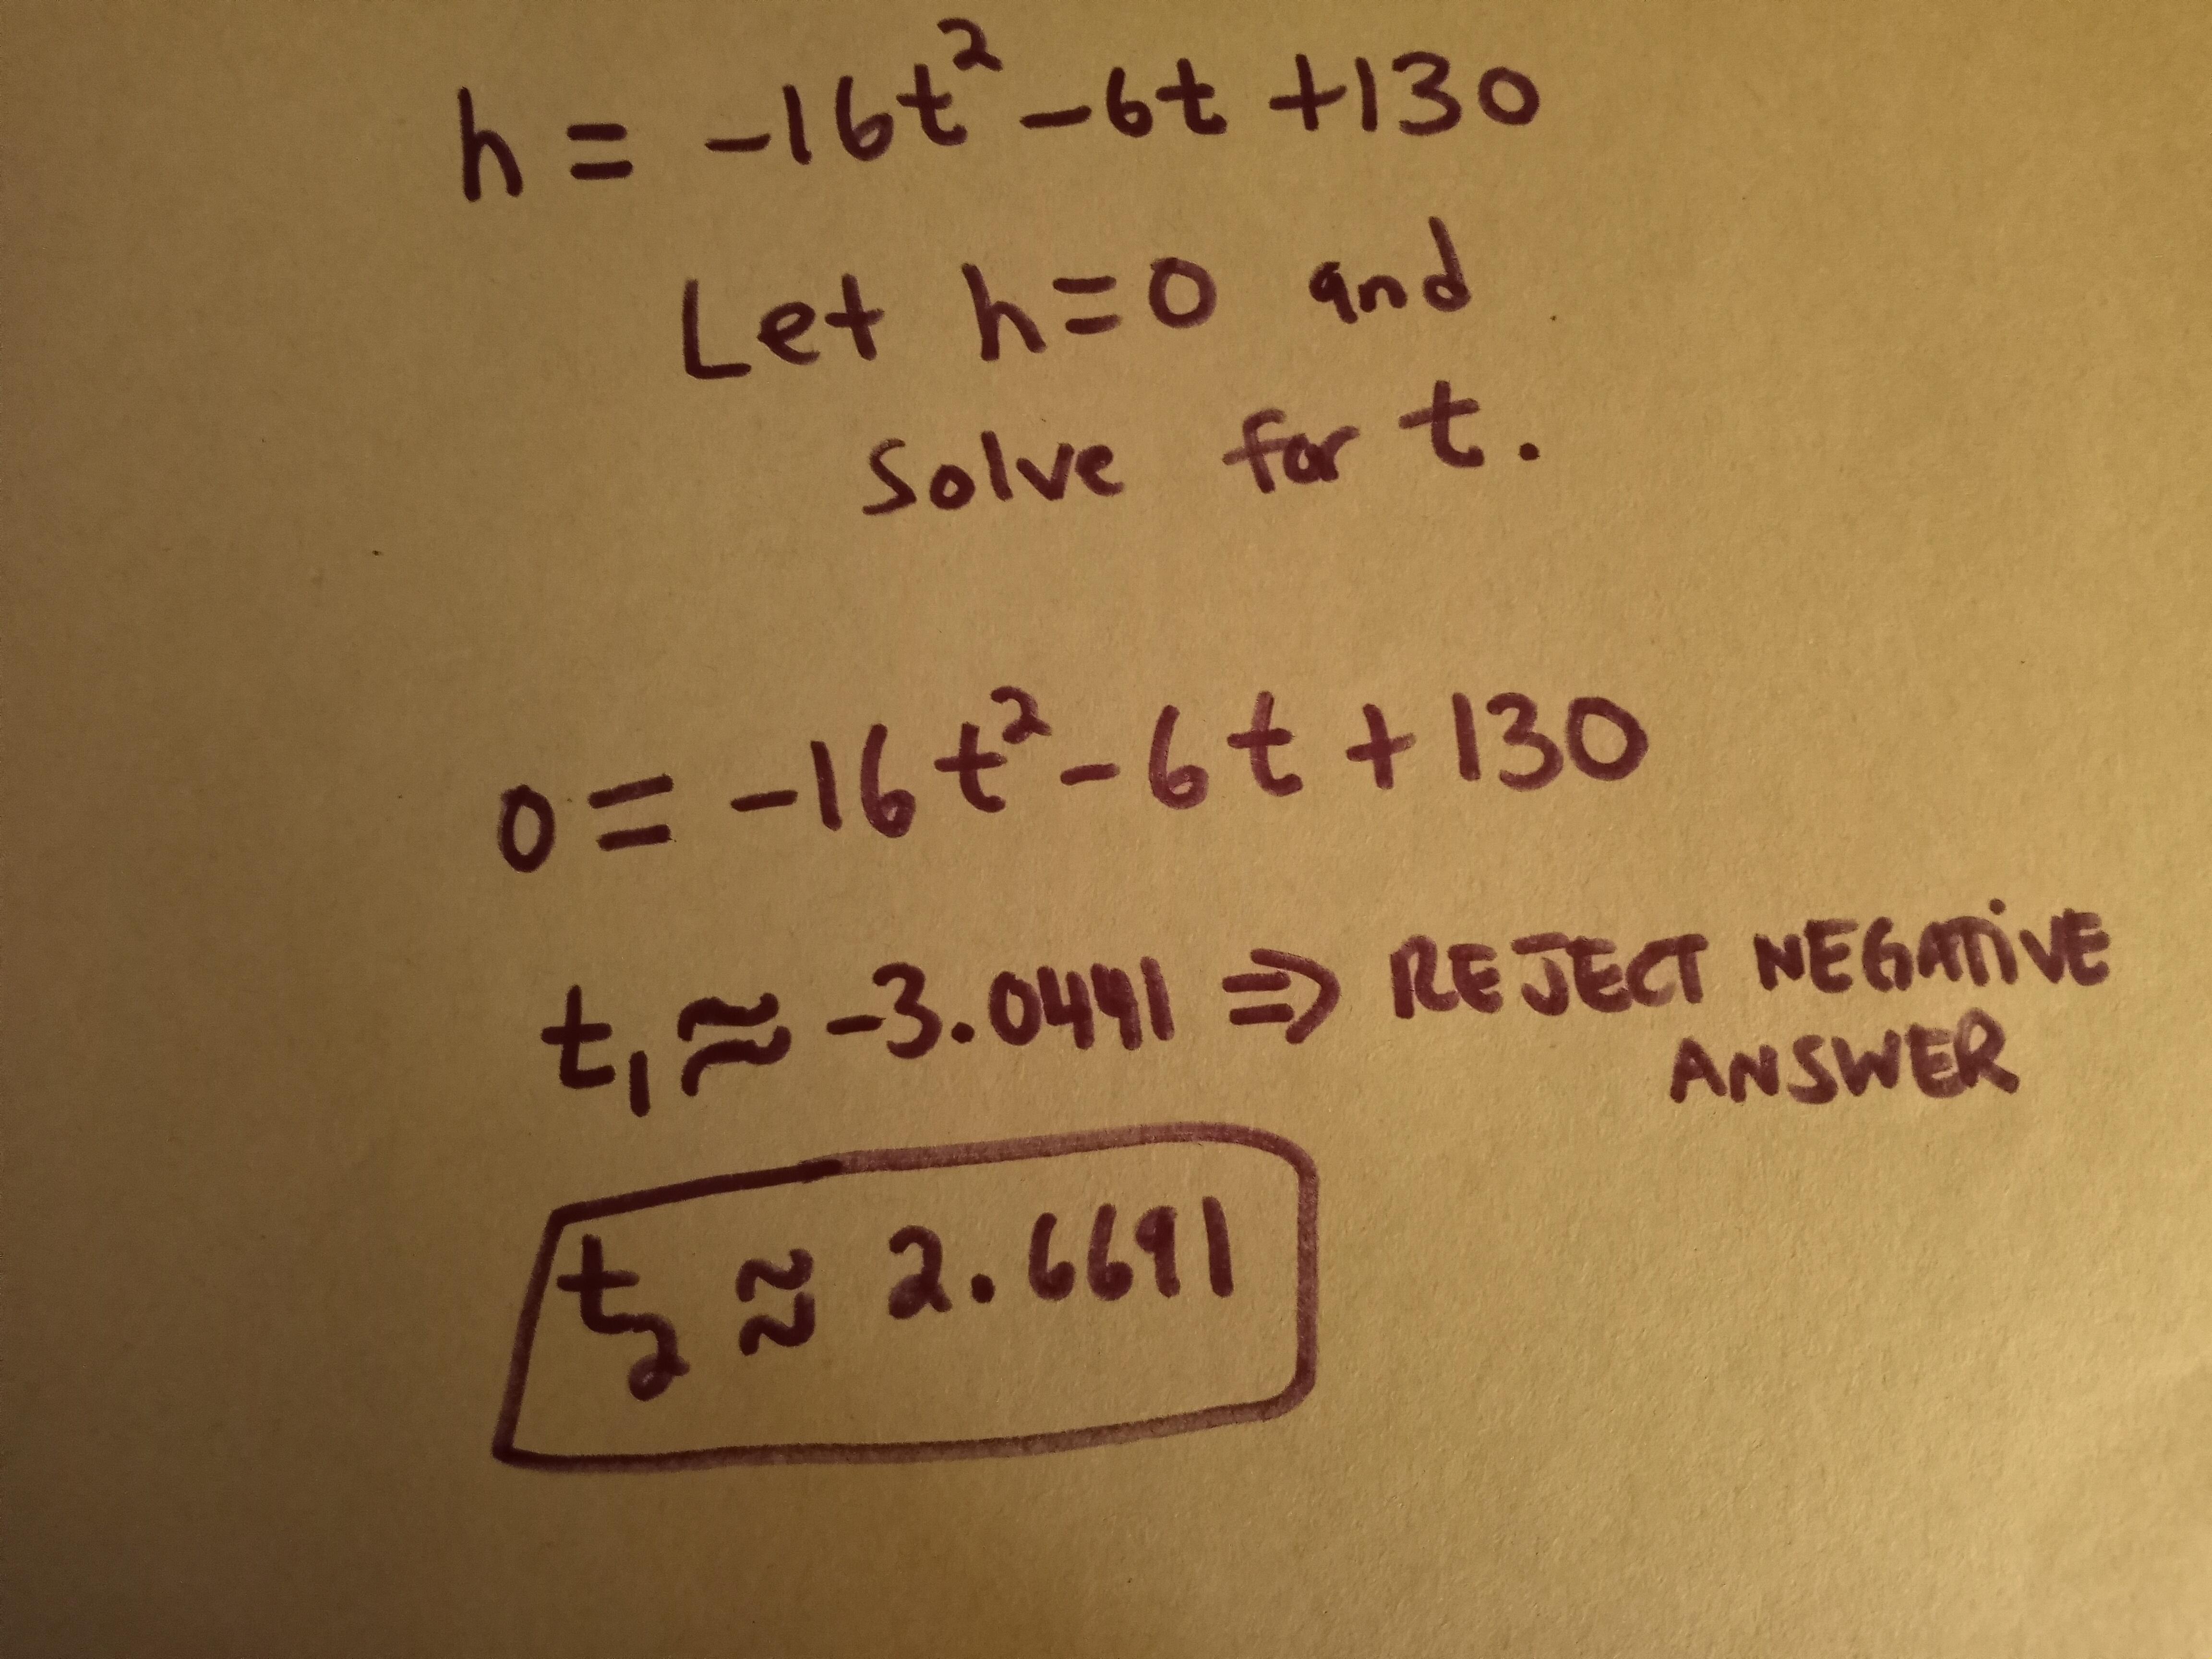 h = -16t² -6t +130
Let h=0 and
Solve for t.
0 = -16t² - 6t + 130
t₁ ≈ -3.0441 ⇒ REJECT NEGATIVE
ANSWER
t₂ ≈ 2.6691